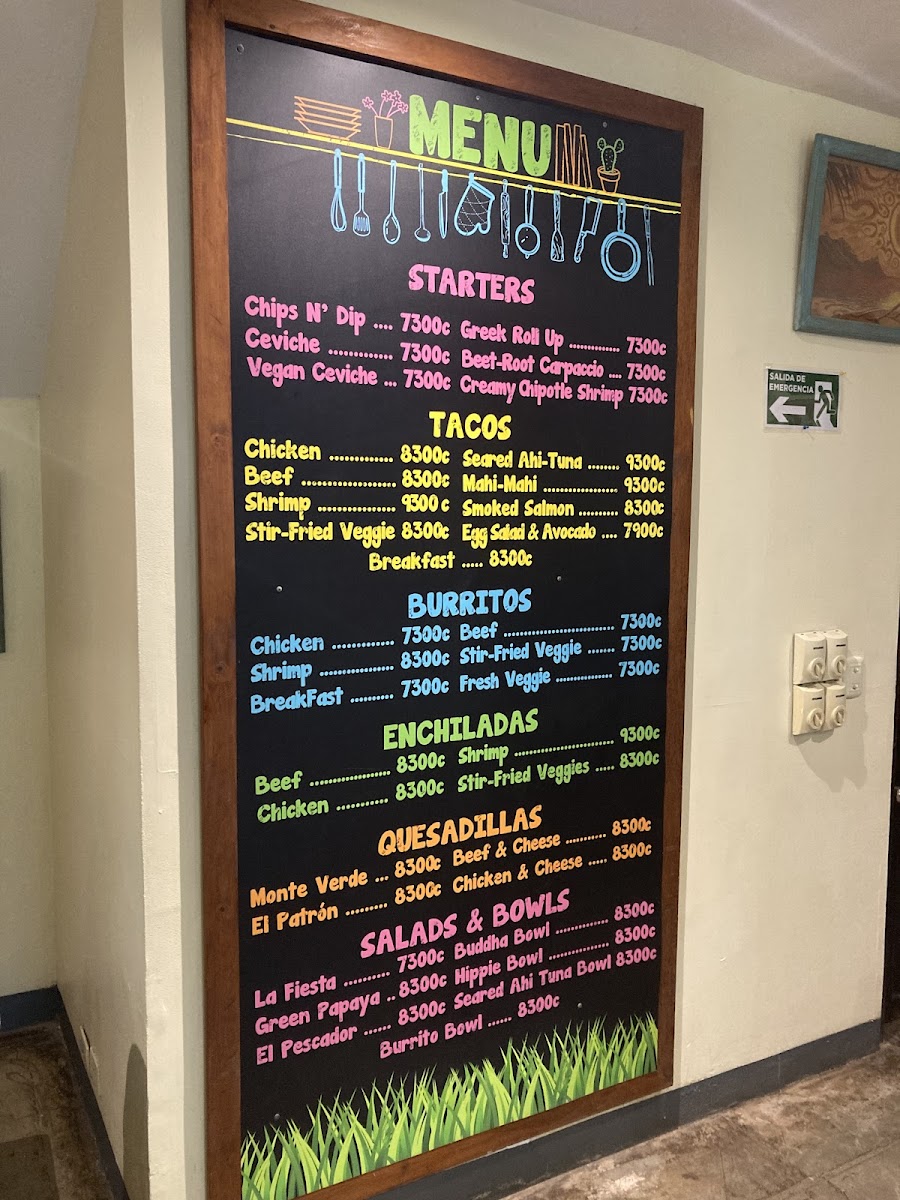 MENU
STARTERS
Chips N' Dip .... 7300c
Ceviche ............. 7300c
Vegan Ceviche ... 7300c
Greek Roll Up ............. 7300c
Beet-Root Carpaccio .... 7300c
Creamy Chipotle Shrimp 7300c
TACOS
Chicken ............. 8300c
Beef ................... 8300c
Shrimp ................ 9300c
Stir-Fried Veggie 8300c
Seared Ahi-Tuna ........ 9300c
Mahi-Mahi ................... 9300c
Smoked Salmon .......... 8300c
Egg Salad & Avocado .... 7900c
Breakfast ..... 8300c
BURRITOS
Chicken ............. 7300c
Shrimp ................ 8300c
BreakFast .......... 7300c
Beef ............................ 7300c
Stir-Fried Veggie ....... 7300c
Fresh Veggie .............. 7300c
ENCHILADAS
Beef .................. 8300c
Chicken ........... 8300c
Shrimp ...................... 9300c
Stir-Fried Veggies ..... 8300c
QUESADILLAS
Monte Verde ... 8300c
El Patrón ......... 8300c
Beef & Cheese ........... 8300c
Chicken & Cheese ..... 8300c
SALADS & BOWLS
La Fiesta .......... 7300c
Green Papaya .. 8300c
El Pescador ...... 8300c
Buddha Bowl ............. 8300c
Hippie Bowl ............... 8300c
Seared Ahi Tuna Bowl 8300c
Burrito Bowl ...... 8300c
SALIDA DE
EMERGENCIA